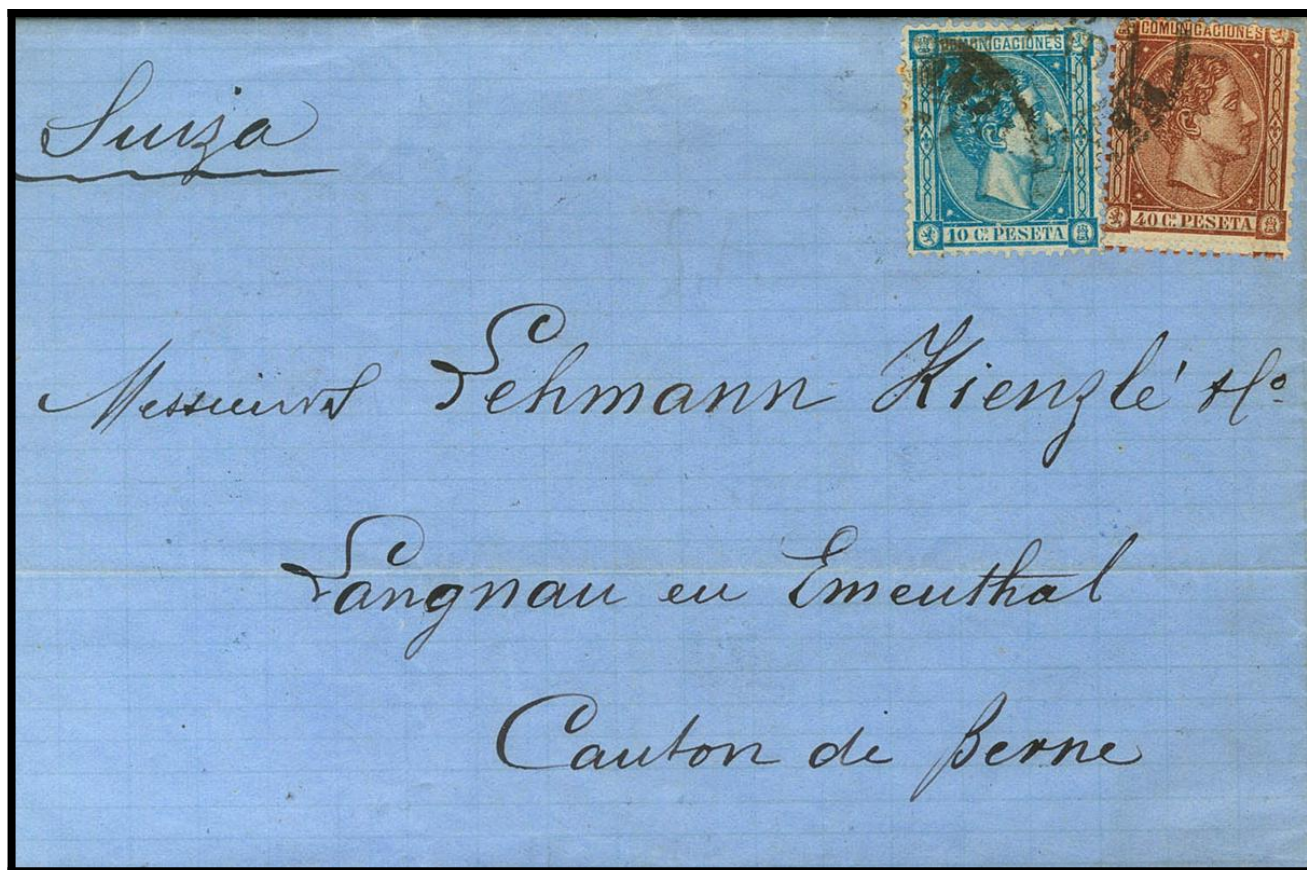 COMUNICACIONES
10 Cs. PESETA
COMUNICACIONES
40 Cs. PESETA
Suiza
Messieurs Lehmann Kienzlé & Co
Langnau en Ementhal
Canton de Berne